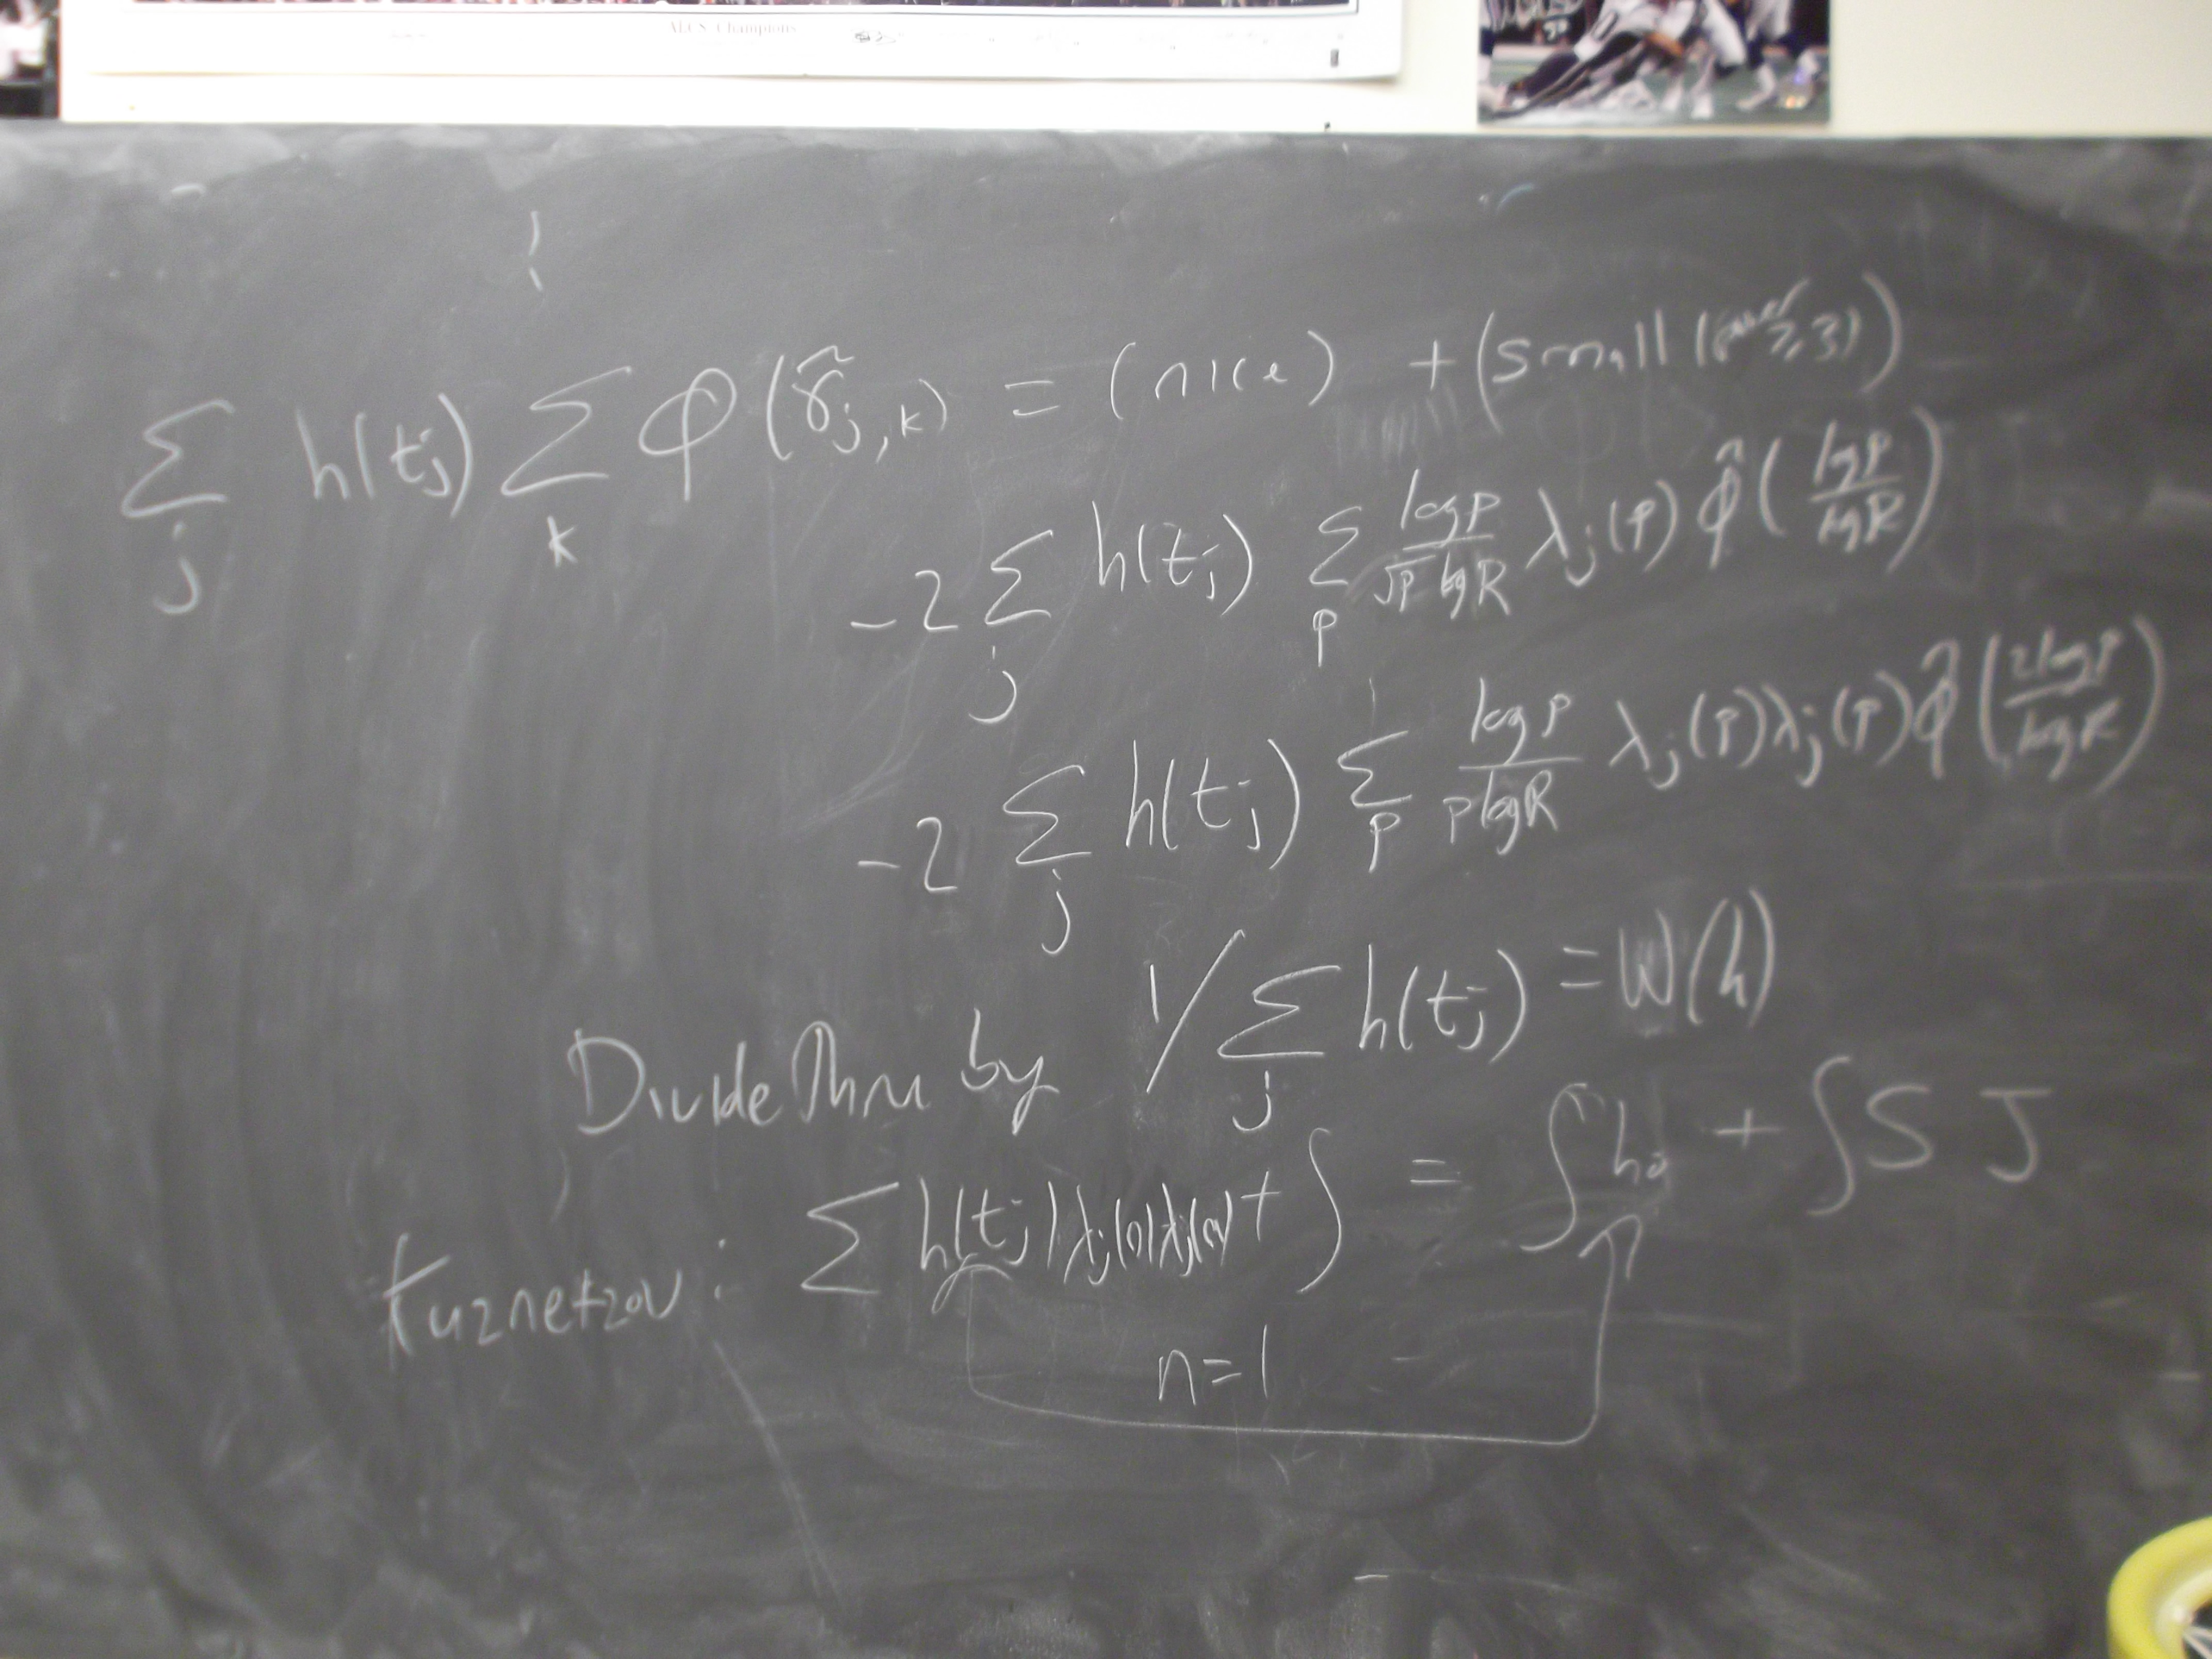 ALCS Champions
∑_j h(t_j) ∑_k φ(γ̃_{j,k}) = (nice) + (small (≥3))
-2 ∑_j h(t_j) ∑_p (log p)/(√p log R) λ_j(p) φ̂((log p)/(log R))
-2 ∑_j h(t_j) ∑_p (log p)/(p log R) λ_j(p)λ_j(p) φ̂((2 log p)/(log R))
Divide thru by 1/∑_j h(t_j) = W(h)
Kuznetzov: ∑ h(t_j) λ_j() λ_j() + ∫ = ∫ h + ∫ S J
n=1